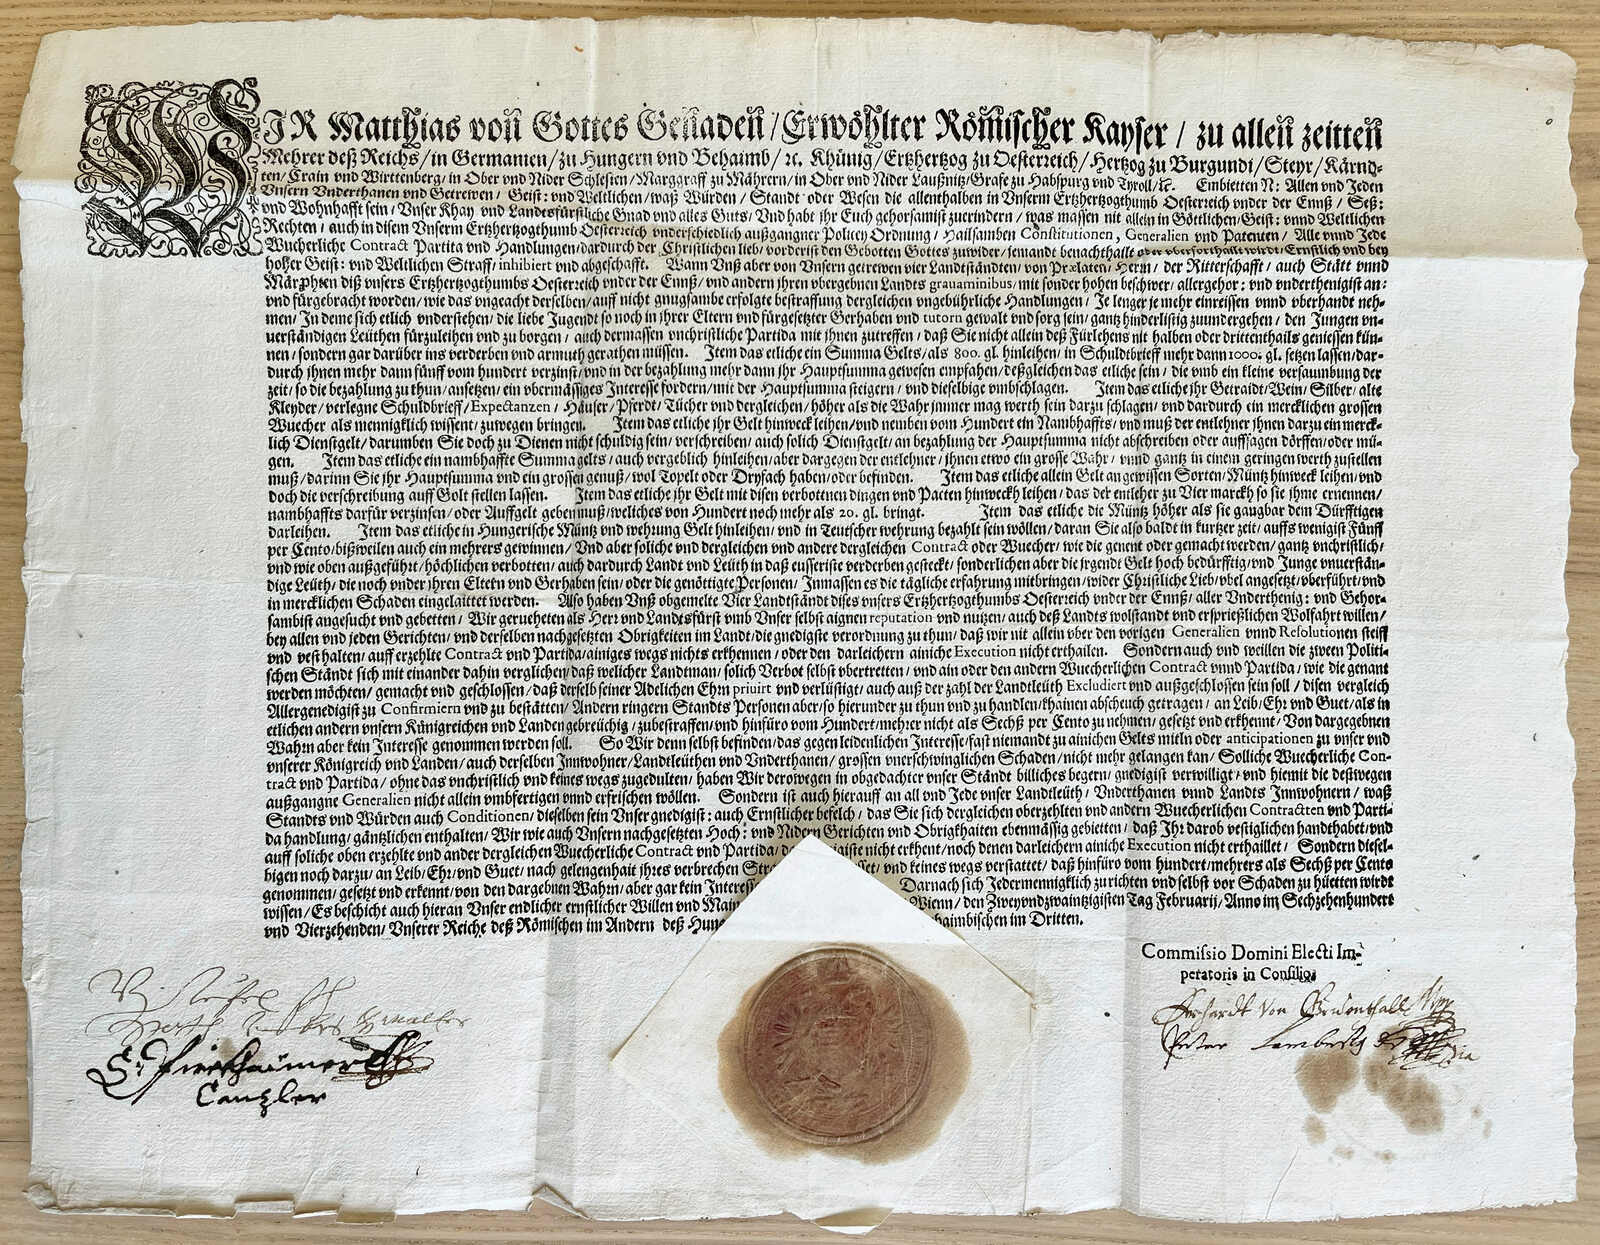 WIR Matthias von Gottes Genaden / Erwöhlter Römischer Kayser / zu allen zeitten
Mehrer deß Reichs / in Germanien / zu Hungern vnd Behaimb / ꝛc. Khünig / Ertzhertzog zu Oesterreich / Hertzog zu Burgundi / Steyr / Kärnd-
ten / Crain vnd Wirttenberg / in Ober vnd Nider Schlesien / Marggraff zu Mährern / in Ober vnd Nider Laußnitz / Grafe zu Habspurg vnd Tyroll / ꝛc. Embietten N: Allen vnd Jeden
Vnsern Vnderthanen vnd Getrewen / Geist: vnd Weltlichen / waß Würden / Standt oder Wesen die allenthalben in Vnserm Ertzhertzogthumb Oesterreich vnder der Ennß / Seß:
vnd Wohnhafft sein / Vnser Khay: vnd Landesfürstliche Gnad vnd alles Guts / Vnd habt jhr Euch gehorsamist zuerindern / was massen nit allein in Göttlichen / Geist: vnnd Weltlichen
Rechten / auch in disem Vnserm Ertzhertzogthumb Oesterreich vnderschiedlich außgangner Policey Ordnung / Hailsamben Constitutionen, Generalien vnd Patenten / Alle vnnd Jede
Wucherliche Contract Partita vnd Handlungen / dardurch der Christlichen lieb / vorderist den Gebotten Gottes zuwider / jemandt benachthailt oder vberforthailt wirdt / Ernstlich vnd bey
hoher Geist: vnd Weltlichen Straff / inhibiert vnd abgeschafft. Wann Vnß aber von Vnsern getrewen vier Landtständten / von Prælaten / Herrn / der Ritterschafft / auch Stätt vnnd
Märckhten diß vnsers Ertzhertzogthumbs Oesterreich vnder der Ennß / vnd andern jhren vbergebnen Landts grauaminibus / mit sonder hohen beschwer / allergehor: vnd vnderthenigist an:
vnd fürgebracht worden / wie das vngeacht derselben / auff nicht gnugsambe erfolgte bestraffung dergleichen vngebührliche Handlungen / Je lenger je mehr einreissen vnnd vberhandt neh-
men / In deme sich etlich vnderstehen / die liebe Jugendt so noch in jhrer Eltern vnd fürgesetzter Gerhaben vnd tutorn gewalt vnd sorg sein / gantz hinderlistig zuundergehen / den Jungen vn-
uerständigen Leüthen fürzuleihen vnd zu borgen / auch dermassen vnchristliche Partida mit jhnen zutreffen / daß Sie nicht allein deß Fürlehens nit halben oder drittenthails geniessen kün-
nen / sondern gar darüber ins verderben vnd armuth gerathen müssen. Item das etliche ein Summa Gelts / als 800. gl. hinleihen / in Schuldtbrieff mehr dann 1000. gl. setzen lassen / dar-
durch jhnen mehr dann fünff vom hundert verzinst / vnd in der bezahlung mehr dann jhr Hauptsumma gewesen empfahen / deßgleichen das etliche sein / die vmb ein kleine versaumbung der
zeit / so die bezahlung zu thun / ansetzen / ein vbermässiges Interesse fordern / mit der Hauptsumma steigern / vnd dieselbige vmbschlagen. Item das etliche jhr Getraidt / Wein / Silber / alte
Kleyder / verlegne Schuldbrieff / Expectanzen / Häuser / Pferdt / Tücher vnd dergleichen / höher als die Wahr jmmer mag werth sein darzu schlagen / vnd dardurch ein mercklichen grossen
Wuecher als menniglich wissent / zuwegen bringen. Item das etliche jhr Gelt hinweck leihen / vnd nemben vom Hundert ein Nambhaffts / vnd muß der entlehner jhnen darzu ein merck-
lich Dienstgelt / darumben Sie doch zu Dienen nicht schuldig sein / verschreiben / auch solich Dienstgelt / an bezahlung der Hauptsumma nicht abschreiben oder auffsagen dörffen / oder mü-
gen. Item das etliche ein nambhaffte Summa gelts / auch vergeblich hinleihen / aber dargegen der entlehner / jhnen etwo ein grosse Wahr / vnnd gantz in einem geringen werth zustellen
muß / darinn Sie jhr Hauptsumma vnd ein grossen genuß / wol Topelt oder Dryfach haben / oder befinden. Item das etliche allein Gelt an gewissen Sorten / Müntz hinweck leihen / vnd
doch die verschreibung auff Golt stellen lassen. Item das etliche jhr Gelt mit disen verbottnen dingen vnd Pacten hinweckh leihen / das der entleher zu Vier marckh so sie jhme ernennen /
nambhaffts darfür verzinsen / oder Auffgelt geben muß / weliches von Hundert noch mehr als 20. gl. bringt. Item das etliche die Müntz höher als sie gaugbar dem Dürfftigen
darleihen. Item das etliche in Hungerische Müntz vnd wehrung Gelt hinleihen / vnd in Teutscher wehrung bezahlt sein wöllen / daran Sie also baldt in kurtzer zeit / auffs wenigist Fünff
per Cento / bißweilen auch ein mehrers gewinnen / Vnd aber soliche vnd dergleichen vnd andere dergleichen Contract oder Wuecher / wie die genent oder gemacht werden / gantz vnchristlich /
vnd wie oben außgeführt / höchlichen verbotten / auch dardurch Landt vnd Leüth in daß eusseriste verderben gesteckt / sonderlichen aber die jrgendt Gelt hoch bedürfftig / vnd Junge vnuerstän-
dige Leüth / die noch vnder jhren Eltern vnd Gerhaben sein / oder die genöttigte Personen / Inmassen es die tägliche erfahrung mitbringen / wider Christliche Lieb / vbel angesetzt / vberführt / vnd
in mercklichen Schaden eingelaittet werden. Also haben Vnß obgemelte Vier Landtständt dises vnsers Ertzhertzogthumbs Oesterreich vnder der Ennß / aller Vnderthenig: vnd Gehor-
sambist angesucht vnd gebetten / Wir geruehetten als Herr vnd Landtsfürst vmb Vnser selbst aignen reputation vnd nutzen / auch deß Landts wolstandt vnd ersprießlichen Wolfahrt willen /
bey allen vnd jeden Gerichten / vnd derselben nachgesetzten Obrigkeiten im Landt / die gnedigste verordnung zu thun / daß wir nit allein vber den vorigen Generalien vnnd Resolutionen steiff
vnd vest halten / auff erzehlte Contract vnd Partida / ainiges wegs nichts erkhennen / oder den darleichern ainiche Execution nicht erthailen. Sondern auch vnd weillen die zween Politi-
schen Ständt sich mit einander dahin verglichen / daß welicher Landtman / solich Verbot selbst vbertretten / vnd ain oder den andern Wuecherlichen Contract vnnd Partida / wie die genant
werden möchten / gemacht vnd geschlossen / daß derselb seiner Adelichen Ehrn priuirt vnd verlüstigt / auch auß der zahl der Landtleüth Excludiert vnd außgeschlossen sein soll / disen vergleich
Allergenedigist zu Confirmiern vnd zu bestätten / Andern ringern Standts Personen aber / so hierunder zu thun vnd zu handlen / khainen abscheuch getragen / an Leib / Ehr vnd Guet / als in
etlichen andern vnsern Künigreichen vnd Landen gebreüchig / zubestraffen / vnd hinfüro vom Hundert / mehrer nicht als Sechß per Cento zu nehmen / gesetzt vnd erkhennt / Von dargegebnen
Wahrn aber kein Interesse genommen werden soll. So Wir denn selbst befinden / das gegen leidenlichen Interesse / fast niemandt zu ainichen Gelts mitln oder anticipationen zu vnser vnd
vnserer Königreich vnd Landen / auch derselben Innwohner / Landtleüthen vnd Vnderthanen / grossen vnerschwinglichen Schaden / nicht mehr gelangen kan / Solliche Wuecherliche Con-
tract vnd Partida / ohne das vnchristlich vnd keines wegs zugedulten / haben Wir derowegen in obgedachter vnser Ständt billiches begern / gnedigist verwilligt / vnd hiemit die destwegen
außgangne Generalien nicht allein vmbfertigen vnnd erfrischen wöllen. Sondern ist auch hierauff an all vnd Jede vnser Landtleüth / Vnderthanen vnnd Landts Innwohnern / waß
Standts vnd Würden auch Conditionen / dieselben sein Vnser gnedigist: auch Ernstlicher befelch / das Sie sich dergleichen oberzehlten vnd andern Wuecherlichen Contracten vnd Parti-
da handlung / gäntzlichen enthalten / Wir wie auch Vnsern nachgesetzten Hoch: vnd Nidern Gerichten vnd Obrigkhaiten ebenmässig gebieten / daß Ihr darob vestiglichen handthabet / vnd
auff soliche oben erzehlte vnd ander dergleichen Wuecherliche Contract vnd Partida / nicht erkhent / noch denen darleichern ainiche Execution nicht erthaillet / Sondern diesel-
bigen noch darzu / an Leib / Ehr / vnd Guet / nach gelegenhait jhres verbrechen vnd keines wegs verstattet / daß hinfüro vom hundert / mehrers als Sechß per Cento
genommen / gesetzt vnd erkennt / von den dargebnen Wahrn / aber gar kein Darnach sich Jedermenniglich zu richten vnd selbst vor Schaden zu hüetten wirdt
wissen / Es beschicht auch hieran Vnser endlicher ernstlicher Willen vnd Wienn / den Zweyvndzwaintzigisten Tag Februarij / Anno im Sechzehenhundert
vnd Vierzehenden / Vnserer Reiche deß Römischen im Andern deß haimbischen im Dritten.
Commissio Domini Electi Im-
peratoris in Consilio.
Gerhardt von
Peter
Canzler